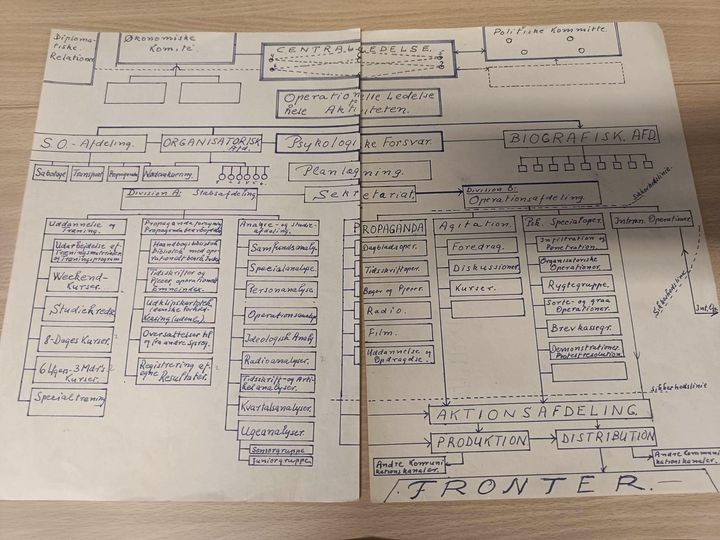 Diploma-
tiske.
Relationer
Økonomiske
Komité.
CENTRALLEDELSE.
Politiske Kommitte.
Operationelle Ledelse
hele Aktiviteten.
S.O.-Afdeling.
ORGANISATORISK
Afd.
Psykologiske Forsvar.
BIOGRAFISK. AFD.
Sabotage
Transport
Propaganda
Planlægning.
Sikkerhedslinie.
Division A: Stabsafdeling
Sekretariat.
Division B:
Operationsafdeling.
Uddannelse og
Træning.
Udarbejdelse af
Træningsmateriale
og Træningsprogram
Weekend-
Kurser.
Studiekreds
8-Dages Kurser.
6 Ugen-3 Mdr's
Kurser.
Specialtræning
Haandbogsbibliotek
Tidskrifter og
Pjecer, operationelt
Emneindex.
Udklipskartotek
Oversættelser til
og fra andre Sprog.
Registrering af
Resultater.
Analyse- og Studie-
afdeling.
Samfundsanaly.
Specialanalyse
Personanalyse
Operationsanaly
Ideologisk Analy
Radioanalyser.
Tidsskrift-og Arti-
kelanalyser.
Kvartalsanalyser.
Ugeanalyser.
Seniorgruppe
Juniorgruppe
PROPAGANDA
Dagbladsoper.
Tidskriftoper.
Bøger og Pjecer.
Radio.
Film.
Uddannelse og
Opdragelse.
Agitation.
Foredrag.
Diskussioner
Kurser.
Psk. Specialoper.
Infiltration og
Penetration.
Organisatoriske
Operationer.
Rygtegruppe.
Sorte- og graa
Operationer.
Brevkasegr.
Demonstrationer.
Protestresolution.
Intern. Operationer
Sikkerhedslinie
Sikkerhedslinie
AKTIONSAFDELING.
PRODUKTION
DISTRIBUTION
Andre Komuni
kationskanaler.
Andre Kommuni
kationskanaler.
FRONTER.-